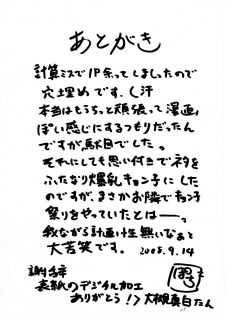 あとがき
計算ミスで1P余ってしましたので
穴埋めです、し汗
本当はもうちっと頑張って漫画っ
ぽい感じにするつもりだったん
ですが駄目でした。
それにしても思い付きでネタを
ふたなり爆乳キョン子にした
のですが、まさかお隣でキョン子
祭りをやっていたとは―。
我ながら計画性無いなぁと
大苦笑です。2008.9.14
謝辞
表紙のデジタル加工
ありがとう!>大槻真白たん